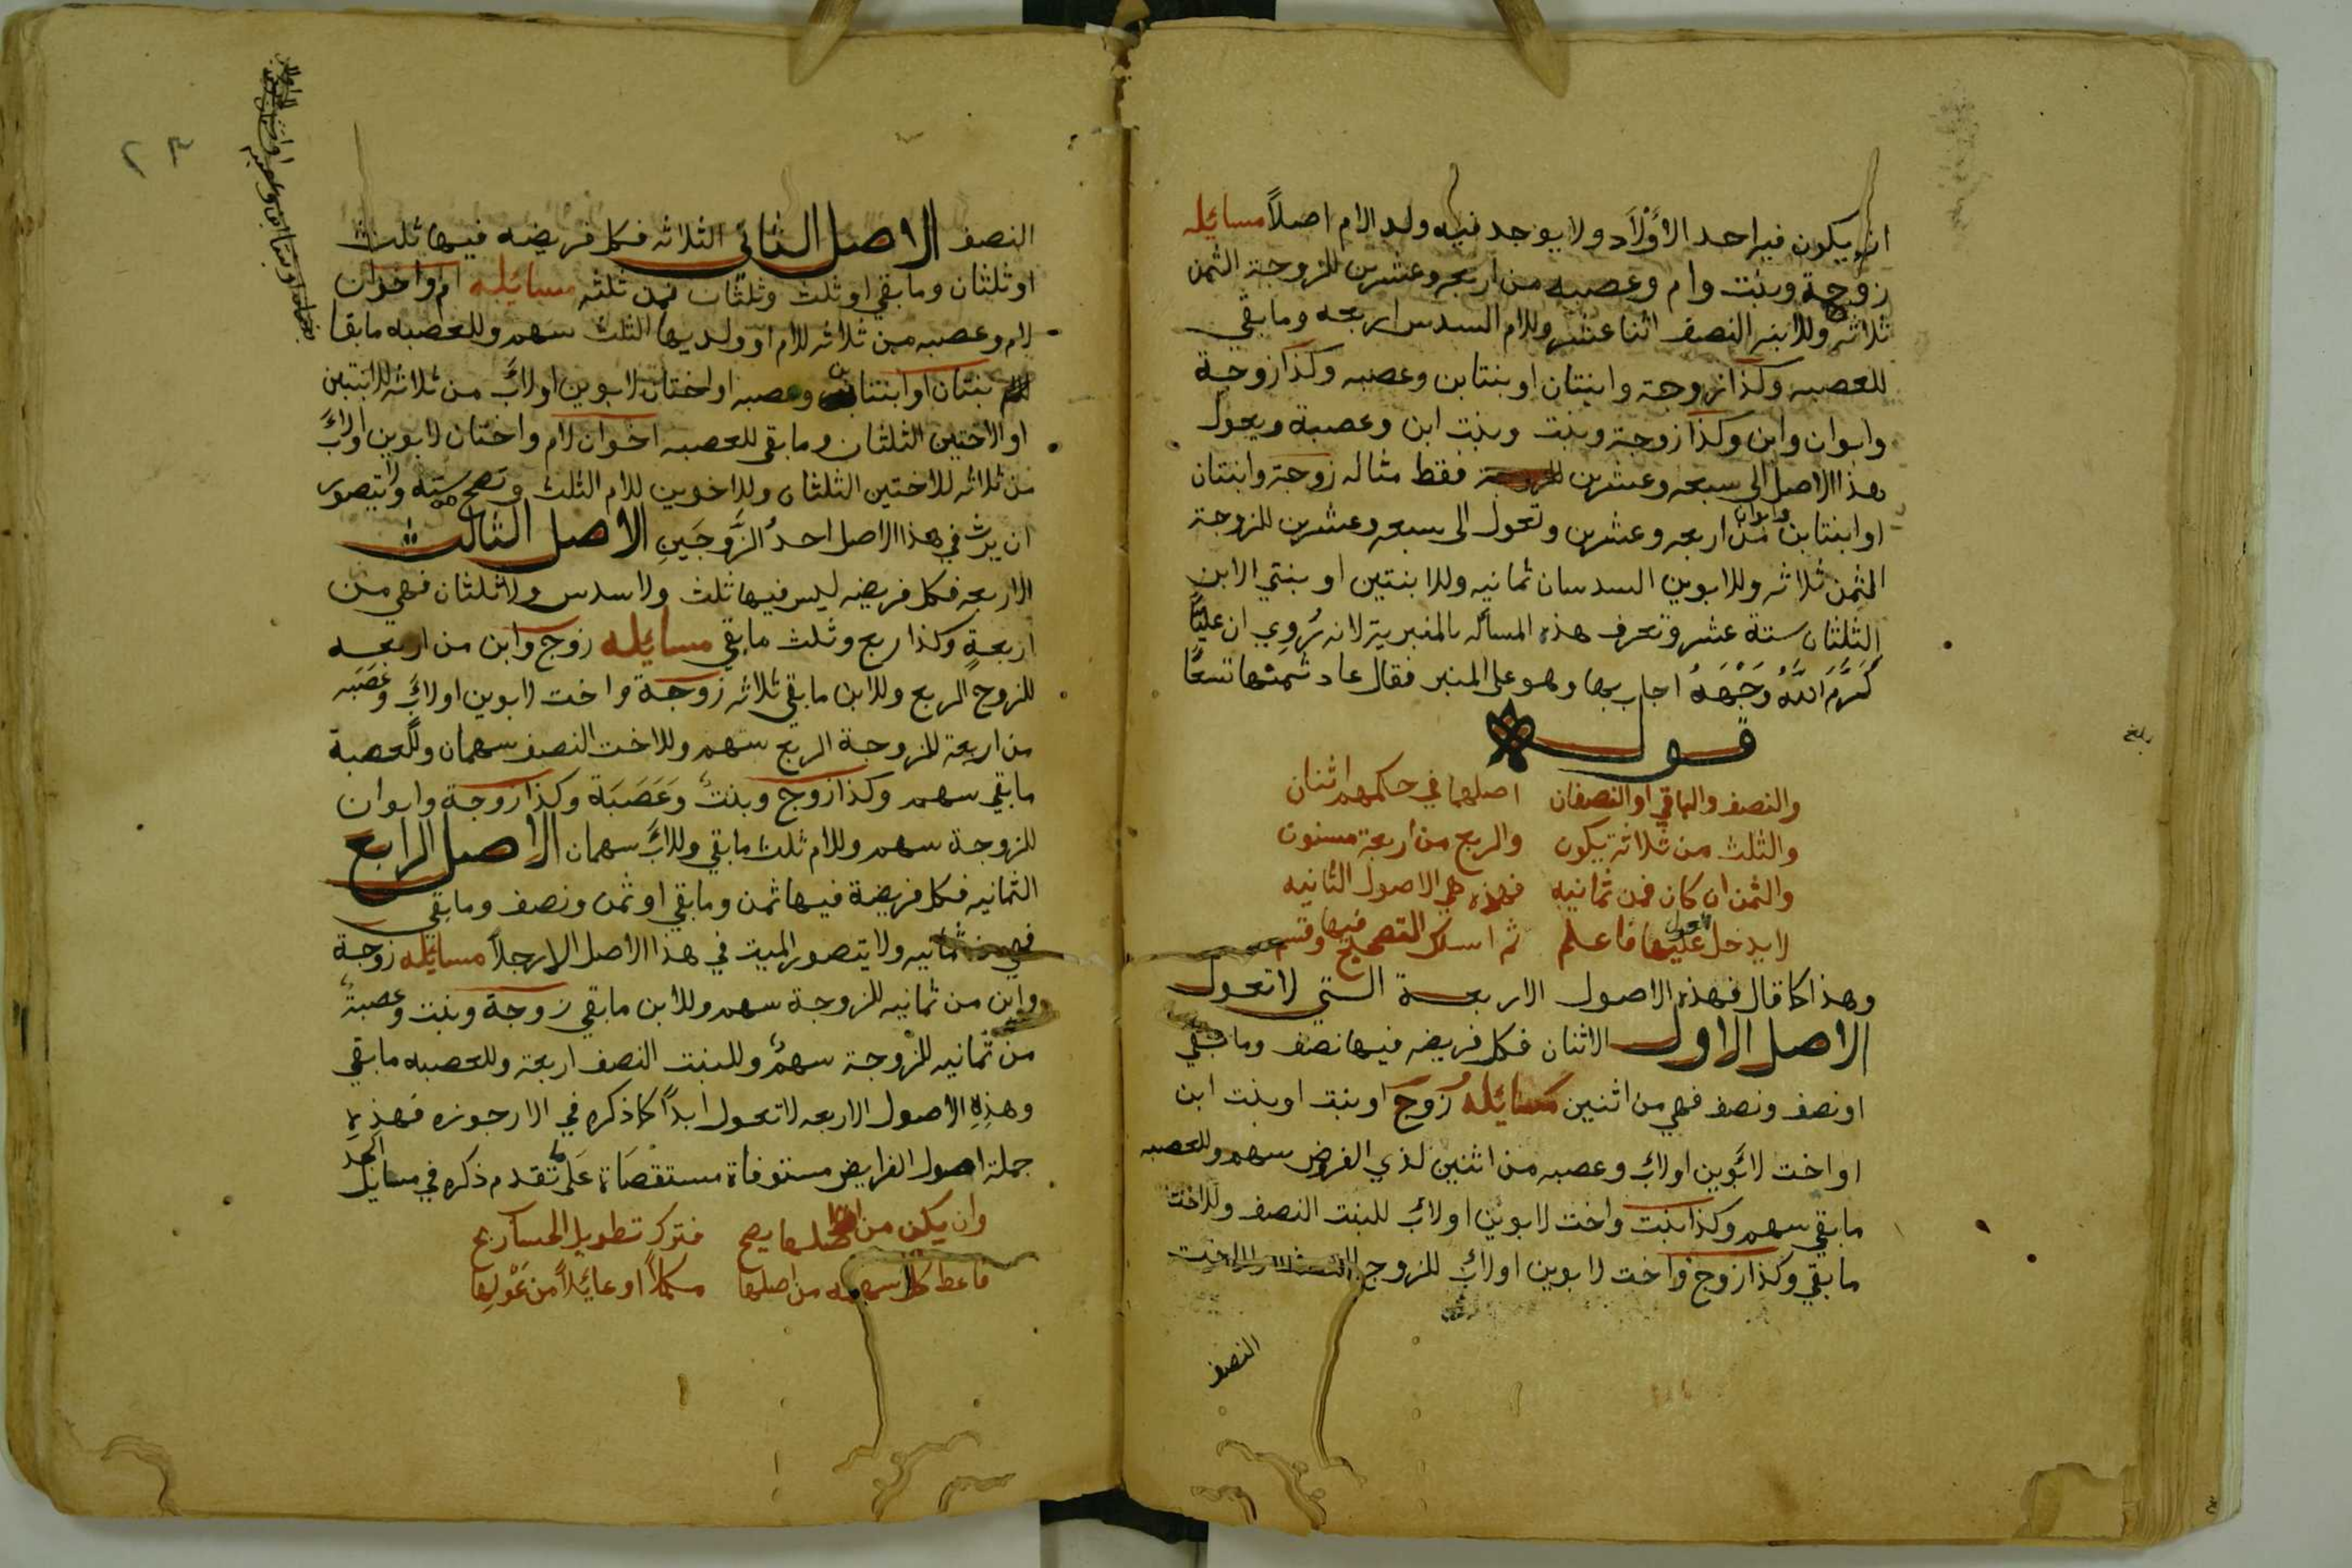 ان يكون فيه احد الأوْلاَد ولا يوجد فيه ولد الام اصلاً مسايله
زوجة وبنت وام وعصبه من اربعه وعشرين للزوجة الثمن
ثلاثه وللابنه النصف اثنا عشر وللام السدس اربعه وما بقي
للعصبه وكذا زوجة وابنتان او بنتا بن وعصبه وكذا زوجة
وابوان وابن وكذا زوجة وبنت وبنت ابن وعصبة ويعول
هذا الاصل الى سبعه وعشرين فقط مثاله زوجة وابنتان
او ابنتا بن وابوان من اربعه وعشرين وتعول الى سبعه وعشرين للزوجة
الثمن ثلاثه وللابوين السدسان ثمانيه وللابنتين او بنتي الابن
الثلثان ستة عشر وتعرف هذه المسأله بالمنبرية لانه رُوِي ان عليًّا
كَرَّمَ اللَّهُ وَجْهَهُ اجاب بها وهو على المنبر فقال عاد ثمنها تسعًا
قوله
والنصف والباقي او النصفان اصلهما في حكمهم اثنان
والثلث من ثلاثة يكون والربع من اربعة مسنون
والثمن ان كان فمن ثمانيه فهذه هي الاصول الثانيه
لا يدخل العول عليها فاعلم ثم اسلك التصحيح فيها وقسم
وهذا كما قال فهذه الاصول الاربعة التي لا تعول
الاصل الاول الاثنان فكل فريضه فيها نصف وما بقي
او نصف ونصف فهي من اثنين مسائله زوج او بنت او بنت ابن
او اخت لابوين او لابٍ وعصبه من اثنين لذي الفرض سهم وللعصبه
ما بقي سهم وكذا بنت واخت لابوين او لابٍ للبنت النصف وللاخت
ما بقي وكذا زوج واخت لابوين او لابٍ للزوج
النصف
بلغ
٢٣
النصف الاصل الثاني الثلاثه فكل فريضه فيها ثلث
او ثلثان وما بقي او ثلث وثلثان فمن ثلثه مسايله ام واخوان
لام وعصبه من ثلاثه للام او ولديها الثلث سهم وللعصبه ما بقا
بنتان او ابنتا بن وعصبه او اختان لابوين او لابٍ من ثلاثه للابنتين
او الاختين الثلثان وما بقى للعصبه اخوان لام واختان لابوين او لابٍ
من ثلاثه للاختين الثلثان وللاخوين للام الثلث وتصح من ستة ولا يتصور
ان يرث في هذا الاصل احدُ الزَّوجَينِ الاصل الثالث
الاربعه فكل فريضه ليس فيها ثلث ولا سدس ولا ثلثان فهي من
اربعةٍ وكذا ربع وثلث ما بقي مسايله زوج وابن من اربعه
للزوج الربع وللابن ما بقى ثلاثه زوجة واخت لابوين او لابٍ وعَصَبه
من اربعة للزوجة الربع سهم وللاخت النصف سهمان وللعصبة
ما بقي سهم وكذا زوج وبنتٌ وَعَصَبَة وكذا زوجة وابوان
للزوجة سهم وللام ثلث ما بقي وللاب سهمان الاصل الرابع
الثمانيه فكل فريضة فيها ثمن وما بقي او ثمن ونصف وما بقي
فهي من ثمانيه ولا يتصور الميت في هذا الاصل الا رجلاً مسايله زوجة
وابن من ثمانيه للزوجة سهم وللابن ما بقي زوجة وبنت وعصبةٌ
من ثمانيه للزوجة سهمٌ وللبنت النصف اربعة وللعصبه ما بقي
وهذِهِ الاصول الاربعه لا تعول ابداً كما ذكره في الارجوزه فهذه
جملة اصول الفرايض مستوفاة مستقصَاة عَلى ما تقدم ذكره في مسايل الجد
وان يكن من اصلها يصح فترك تطويل الحساب ربح
فاعط كلا سهمه من اصلها مكملاً او عائلاً من عَوْلِها